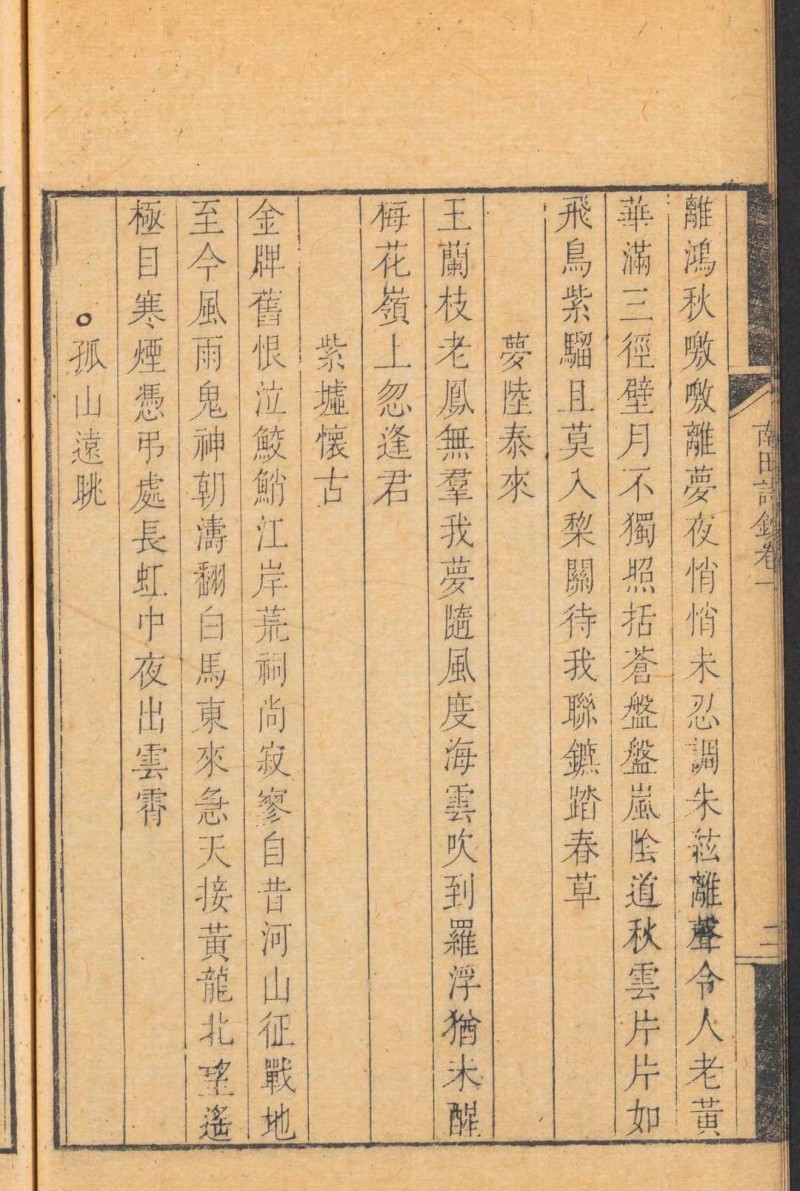 離鴻秋嗷嗷離夢夜悄悄未忍調朱絃離聲令人老黃
華滿三徑壁月不獨照括蒼盤盤嵐陰道秋雲片片如
飛鳥紫騮且莫入棃關待我聯鑣踏春草
夢陸泰來
王蘭枝老鳳無羣我夢隨風度海雲吹到羅浮猶未醒
梅花嶺上忽逢君
紫墟懷古
金牌舊恨泣鮫鮹江岸荒祠尚寂寥自昔河山征戰地
至今風雨鬼神朝濤翻白馬東來急天接黃龍北望遙
極目寒煙憑弔處長虹中夜出雲霄
孤山遠眺
南田詩鈔卷一
二